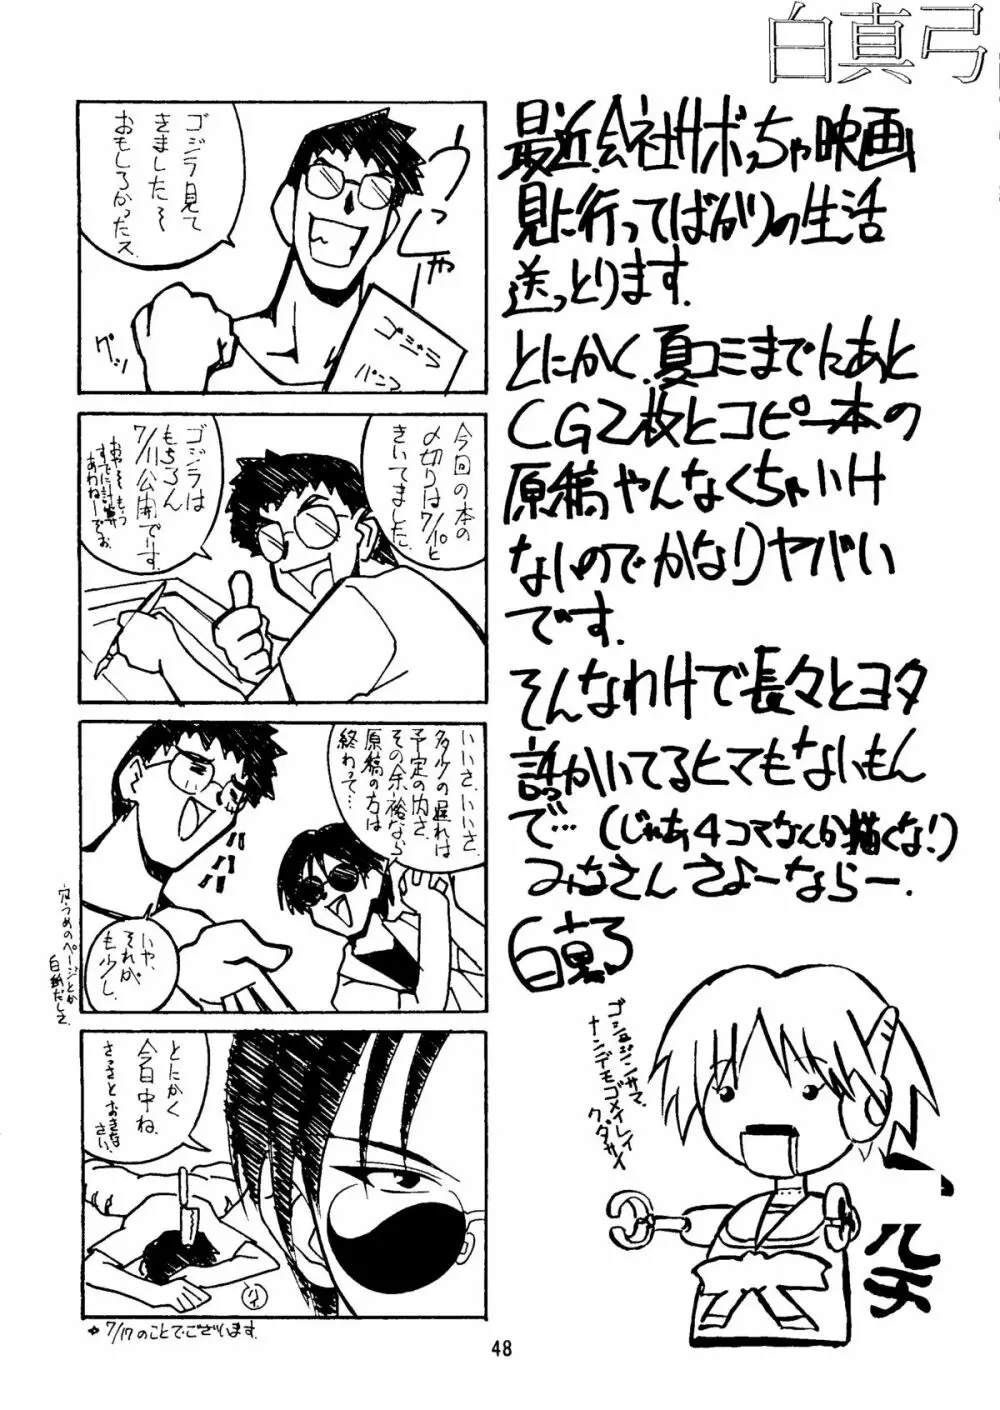 白真弓
最近、会社サボっちゃ映画
見に行ってばかりの生活
送っとります。
とにかく、夏コミまでにあと
CG2枚とコピー本の
原稿やんなくちゃいけ
ないのでかなりヤバい
です。
そんなわけで長々とヨタ
話かいてるヒマもないもん
で…(じゃあ4コマなんか描くな!)
みなさん さよーならー.
ゴシュジンサマ、
ナンデモゴメイレイ
クダサイ
ゴジラ見て
きました〜
おもしろかったス
グッ
ゴジラ
パンフ
今回の本の
〆切りは7/10と
きいてました。
ゴジラは
もちろん
7/11公開です。
おやそもう
すでに計算
あわねーでお
いいさ、いいさ、
多少の遅れは
予定の内さ、
その余裕なら
原稿の方は
終わって…
ハハハ
いや、
それが
も少し、
穴うめのページとか
白紙だしさ、
とにかく
今日中ね.
さっさとおきな
さい.
7/17のことでございます.
48